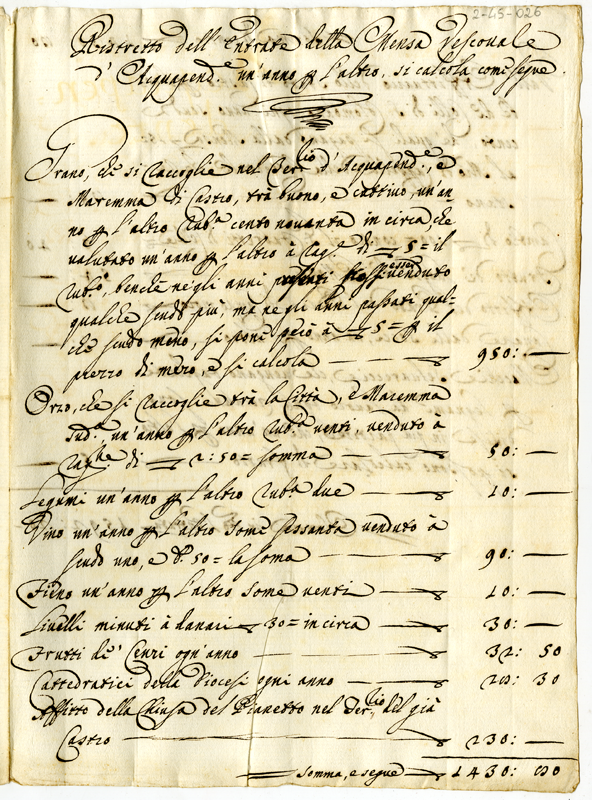 2-45-026
Ristretto dell'Entrate della Mensa Vescovale
d'Acquapend.e un'anno p l'altro, si calcola come segue.
Grano, che si raccoglie nel Ter.lio d'Acquapend.e, e
Maremma di Castro, trà buono, e cattivo, un'an-
no p l'altro rub.a cento novanta in circa, che
valutato un'anno p l'altro à rag.e di 5 = il
rub.o, benche negl'anni presenti essersi venduto
qualche scudo più, mà negl'anni passati qual-
che scudo meno, si pone però à 5 = p il
prezzo di mezo, e si calcola 950: —
Orzo, che si raccoglie trà la Città, e Maremma
sud.a, un'anno p l'altro rub.a venti, venduto à
rag.ne di 2:50 = somma 50: —
Legumi un'anno p l'altro rub.a due 10: —
Vino un'anno p l'altro some sessanta venduto à
scudo uno, e b. 50 = la soma 90: —
Fieno un'anno p l'altro some venti 10: —
Livelli minuti à danari 30 = in circa 30: —
Frutti de' Cenzi ogn'anno 32: 50
Cattedratici della Diocesi ogni anno 20: 30
Affitto della Chiusa del Pianetto nel Ter.lio del già
Castro 230: —
Somma, e segue 1430: 00